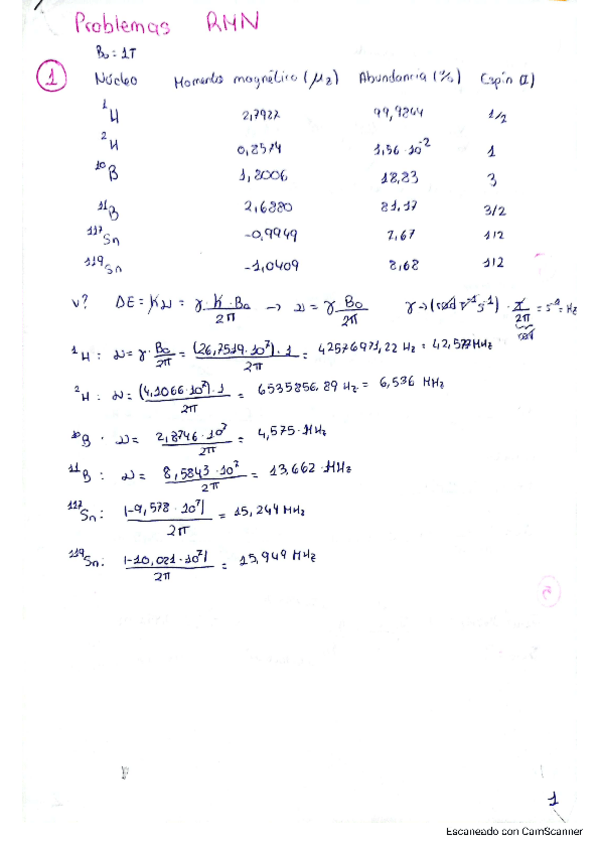 Problemas RMN
B₀ = 1T
① Núcleo Momento magnético (μz) Abundancia (%) Espín (I)
¹H 2,7927 99,9844 1/2
²H 0,8574 1,56·10⁻² 1
¹⁰B 1,8006 18,83 3
¹¹B 2,6880 81,17 3/2
¹¹⁷Sn -0,9949 7,67 1/2
¹¹⁹Sn -1,0409 8,68 1/2
ν? ΔE = hν = γ · h · B₀ / 2π → ν = γ B₀ / 2π γ → (rad T⁻¹ s⁻¹) · 1 / 2π = s⁻¹ = Hz
rad
¹H : ν = γ · B₀ / 2π = (26,7519·10⁷) · 1 / 2π = 42576971,22 Hz = 42,577 MHz
²H : ν = (4,1066·10⁷) · 1 / 2π = 6535856,89 Hz = 6,536 MHz
¹⁰B · ν = 2,8746·10⁷ / 2π = 4,575 MHz
¹¹B : ν = 8,5843·10⁷ / 2π = 13,662 MHz
¹¹⁷Sn: |-9,578·10⁷| / 2π = 15,244 MHz
¹¹⁹Sn: |-10,021·10⁷| / 2π = 15,949 MHz
1
Escaneado con CamScanner